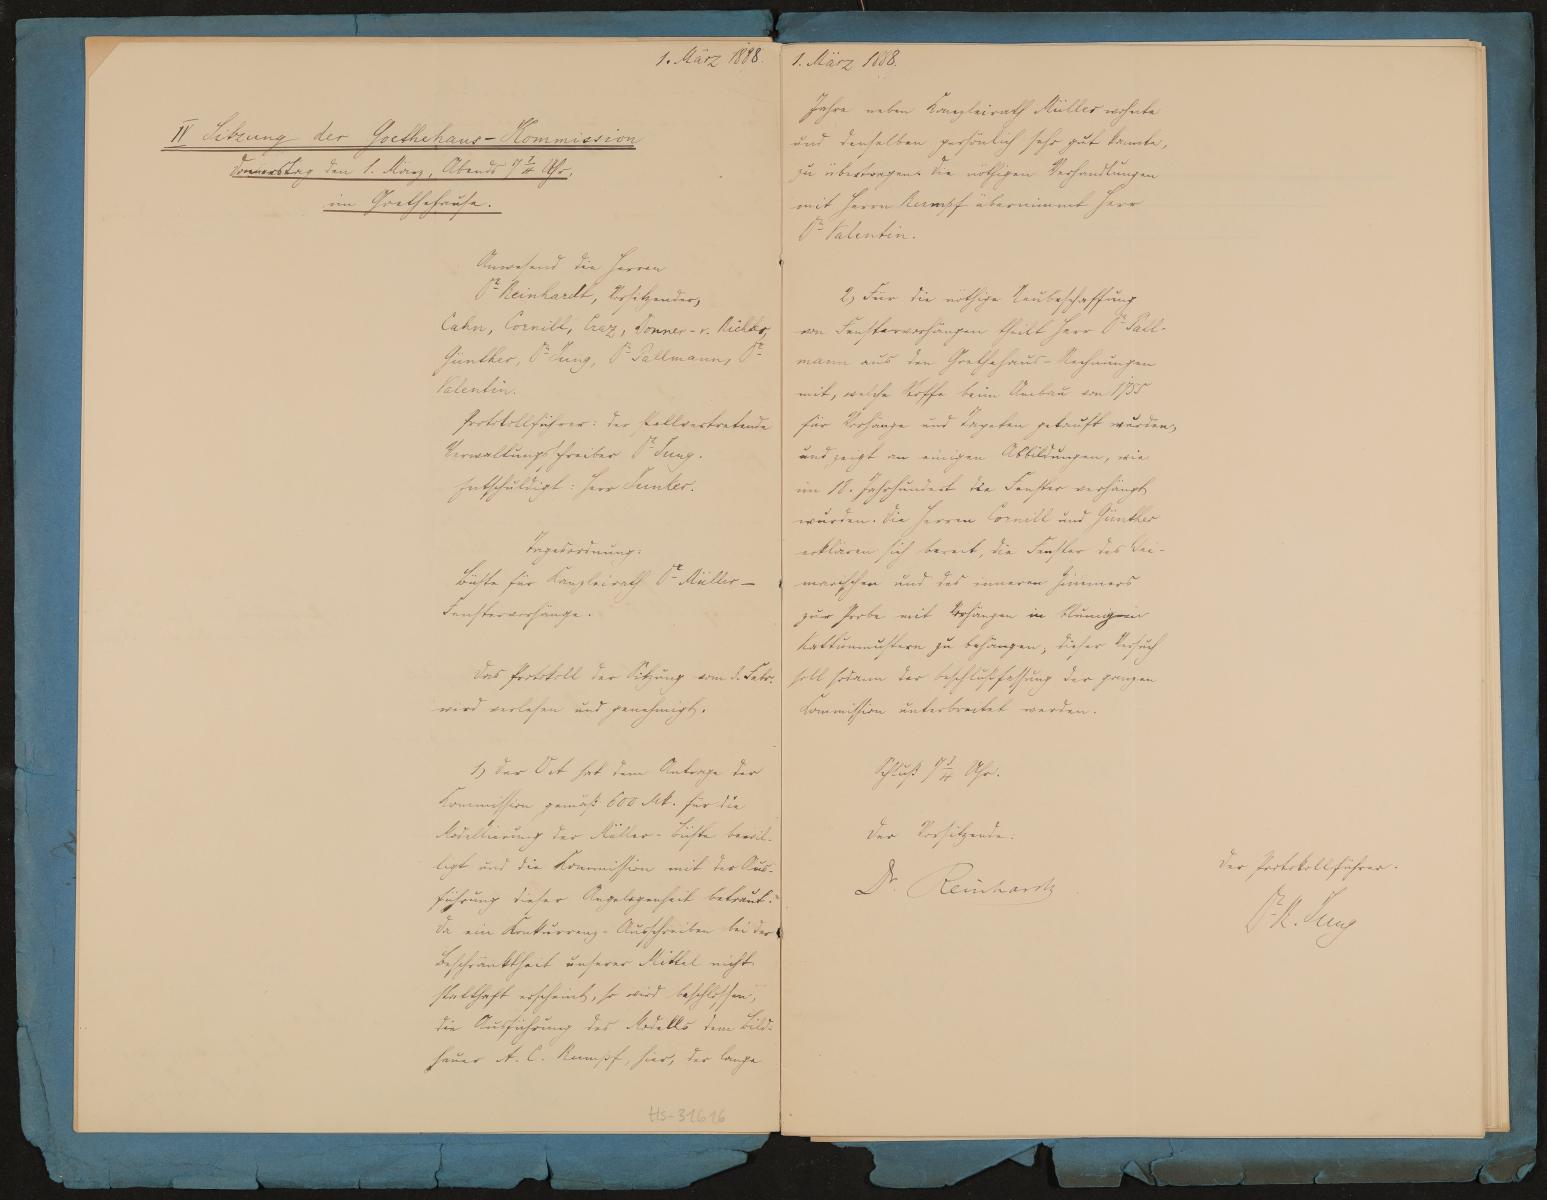 1. März 1888.
IV Sitzung der Goethehaus-Kommission
Donnerstag den 1. März, Abends 7 1/4 Uhr,
im Goethehause.
Anwesend die Herren
Dr. Reinhardt, Vorsitzender,
Cahn, Cornill, Creiz, Donner-v. Richter,
Günther, Dr. Jung, Dr. Pallmann, Dr.
Valentin.
Protokollführer: der stellvertretende
Verwaltungsschreiber Dr. Jung.
Entschuldigt: Herr Junker.
Tagesordnung:
Büste für Kanzleirath Dr. Müller —
Fenstervorhänge.
Das Protokoll der Sitzung vom Febr.
wird verlesen und genehmigt.
1, Der Ort hat dem Antrage der
Kommission gemäß 600 Mk. für die
Modellierung der Müller-Büste bewil-
ligt und die Kommission mit der Aus-
führung dieser Angelegenheit betraut.
Da ein Konkurrenz-Ausschreiben bei der
Beschränktheit unserer Mittel nicht
statthaft erscheint, so wird beschlossen,
die Ausführung des Modells dem Bild-
hauer A. C. Rumpf, hier, der lange
Hs-31616
1. März 1888.
Jahre neben Kanzleirath Müller wohnte
und denselben persönlich sehr gut kannte,
zu übertragen. Die nöthigen Verhandlungen
mit Herrn Rumpf übernimmt Herr
Dr. Valentin.
2, Für die nöthige Neubeschaffung
von Fenstervorhängen theilt Herr Dr. Pall-
mann aus den Goethehaus-Rechnungen
mit, welche Stoffe beim Umbau von 1755
für Vorhänge und Tapeten gekauft wurden,
und zeigt an einigen Abbildungen, wie
im 18. Jahrhundert die Fenster verhängt
wurden. Die Herren Cornill und Günther
erklären sich bereit, die Fenster des Wei-
marischen und des inneren Zimmers
zur Probe mit Vorhängen in blumigen
Kattunmustern zu behängen; dieser Versuch
soll sodann der Beschlußfassung der ganzen
Commission unterbreitet werden.
Schluß 7 3/4 Uhr.
Der Vorsitzende:
Dr. Reinhardt
Der Protokollführer.
Dr. R. Jung